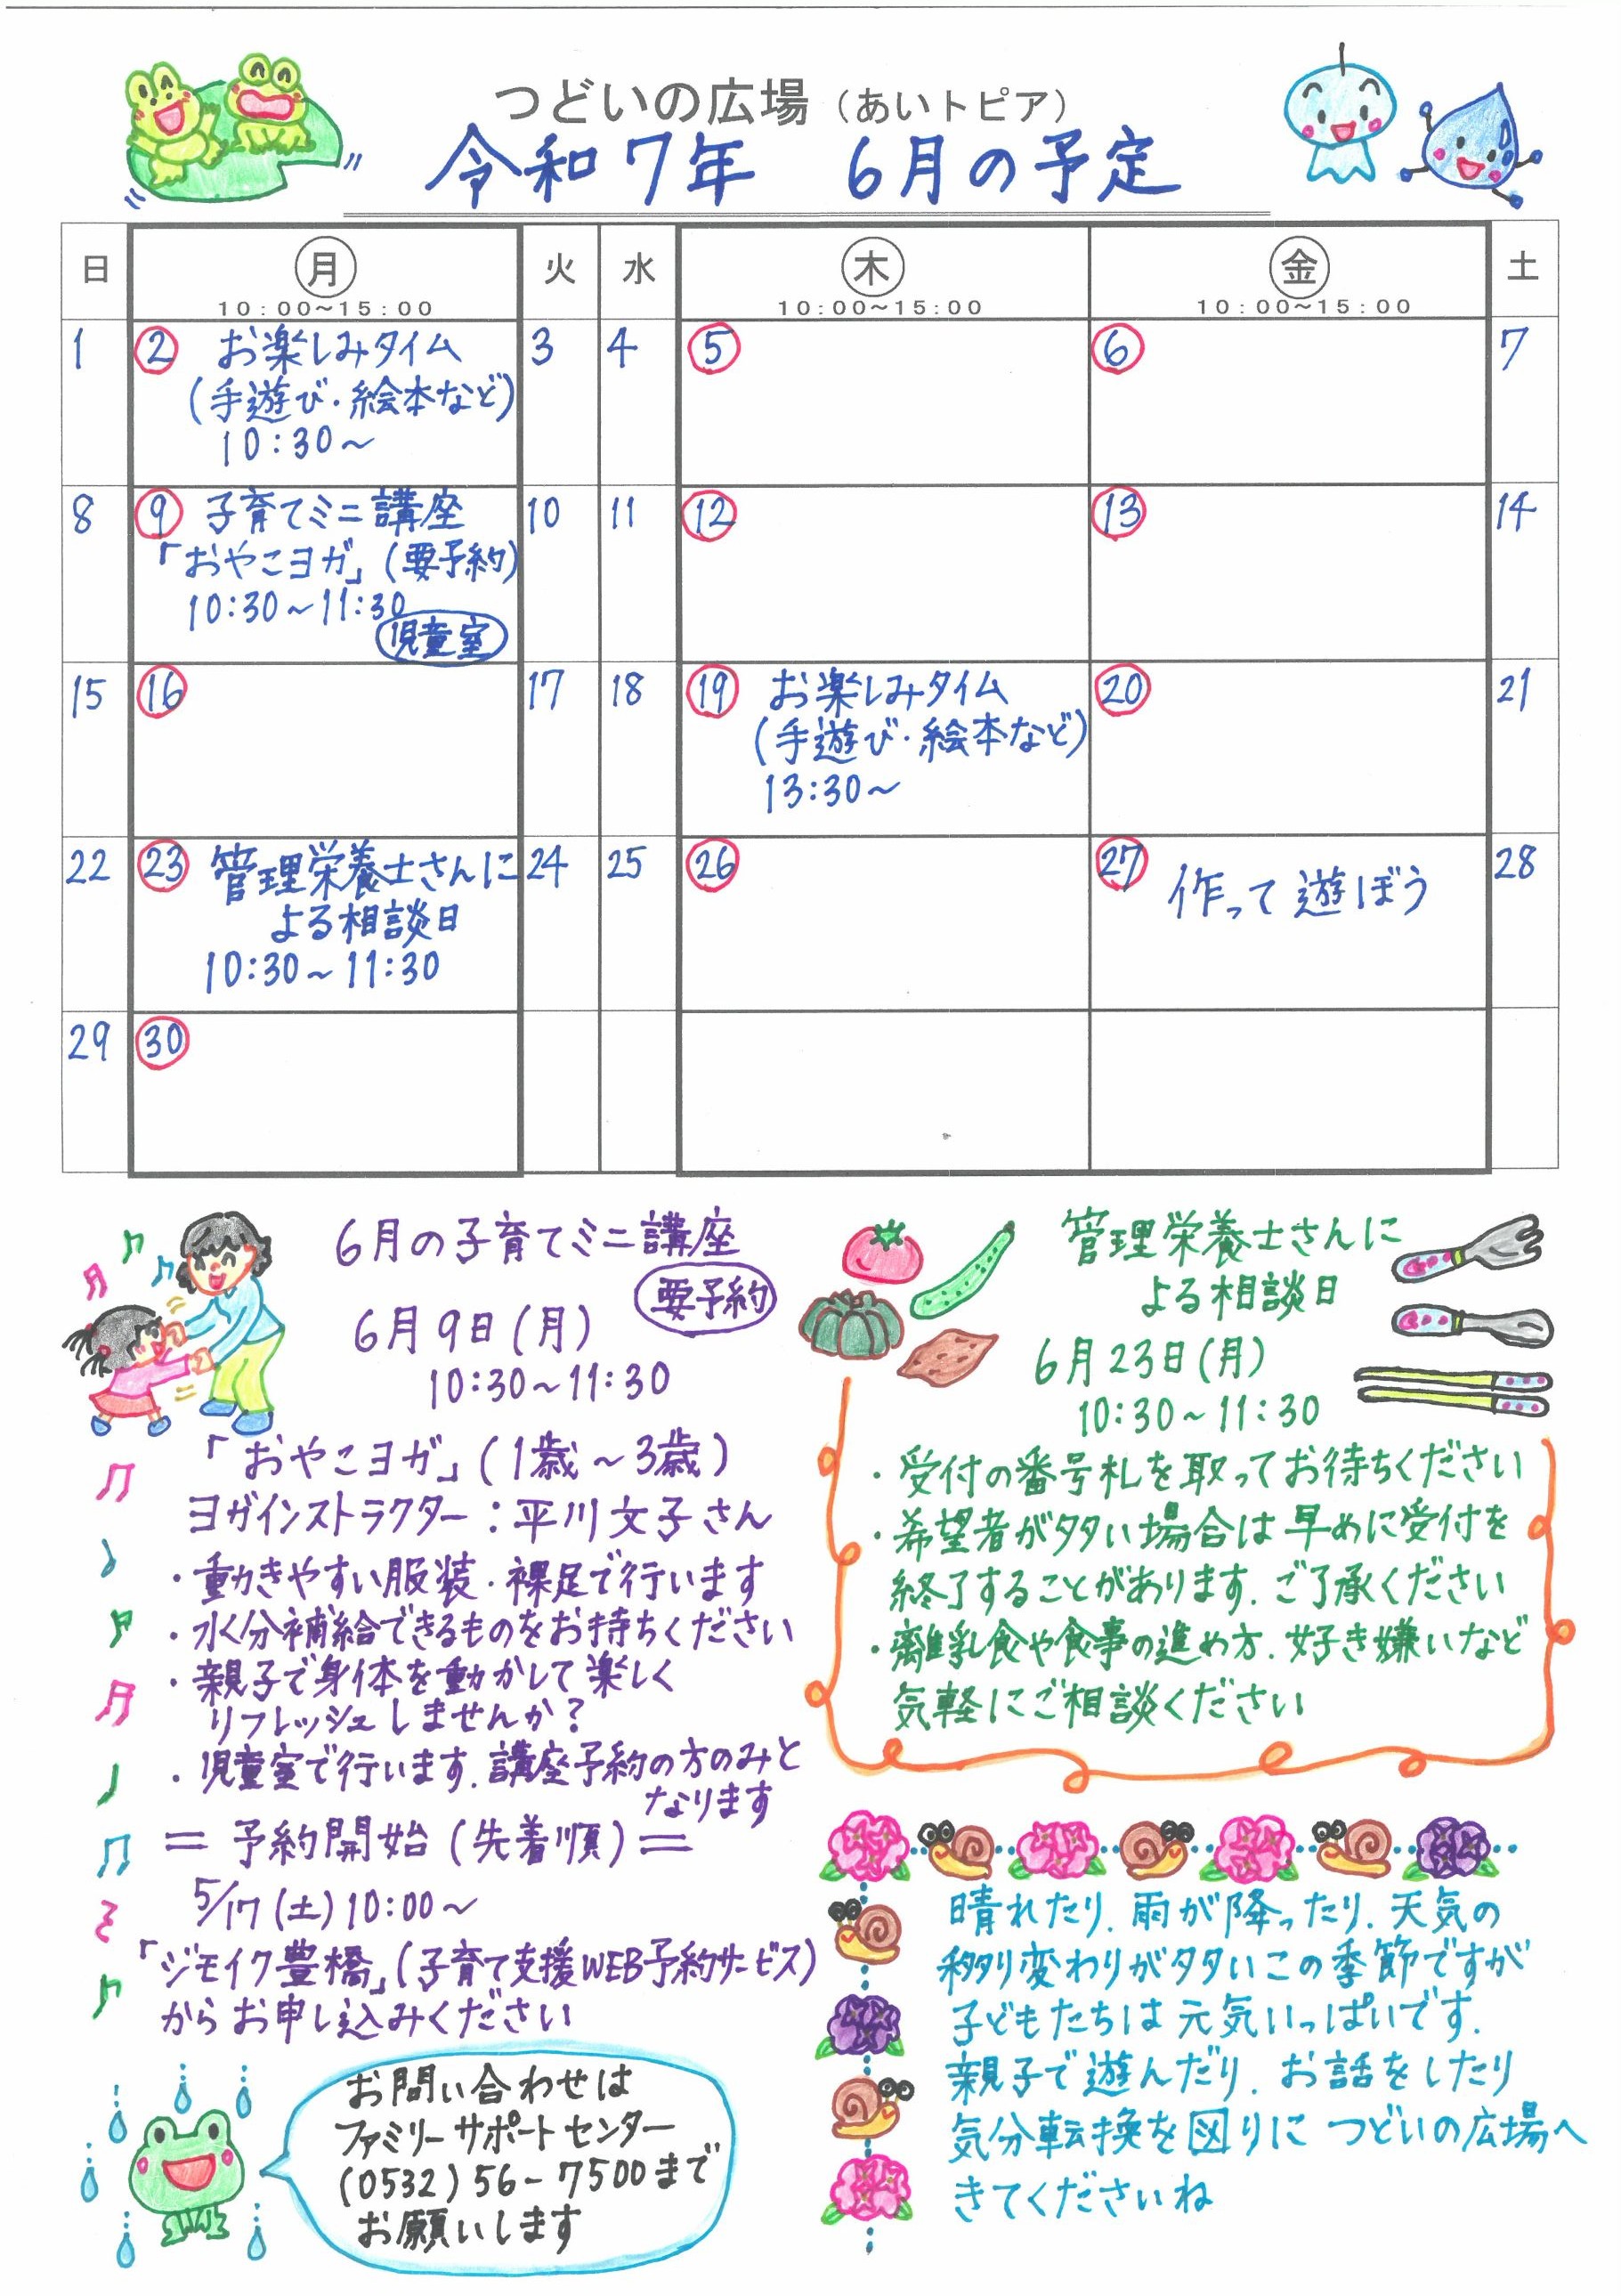 つどいの広場（あいトピア）
令和7年　6月の予定
日 月 火 水 木 金 土
10：00～15：00 10：00～15：00 10：00～15：00
1 2 お楽しみタイム 3 4 5 6 7
(手遊び・絵本など)
10:30～
8 9 子育てミニ講座 10 11 12 13 14
「おやこヨガ」(要予約)
10:30～11:30
児童室
15 16 17 18 19 お楽しみタイム 20 21
(手遊び・絵本など)
13:30～
22 23 管理栄養士さんに 24 25 26 27 作って遊ぼう 28
よる相談日
10:30～11:30
29 30
6月の子育てミニ講座
要予約
6月9日(月)
10:30～11:30
「おやこヨガ」(1歳～3歳)
ヨガインストラクター：平川文子さん
・動きやすい服装.裸足で行います
・水分補給できるものをお持ちください
・親子で身体を動かして楽しく
リフレッシュしませんか？
・児童室で行います.講座予約の方のみと
なります
＝予約開始(先着順)＝
5/17(土)10:00～
「ジモイク豊橋」(子育て支援WEB予約サービス)
からお申し込みください
お問い合わせは
ファミリーサポートセンター
(0532)56-7500まで
お願いします
管理栄養士さんに
よる相談日
6月23日(月)
10:30～11:30
・受付の番号札を取ってお待ちください
・希望者が多い場合は早めに受付を
終了することがあります.ご了承ください
・離乳食や食事の進め方.好き嫌いなど
気軽にご相談ください
晴れたり.雨が降ったり.天気の
移り変わりが多いこの季節ですが
子どもたちは元気いっぱいです.
親子で遊んだり.お話をしたり
気分転換を図りにつどいの広場へ
きてくださいね